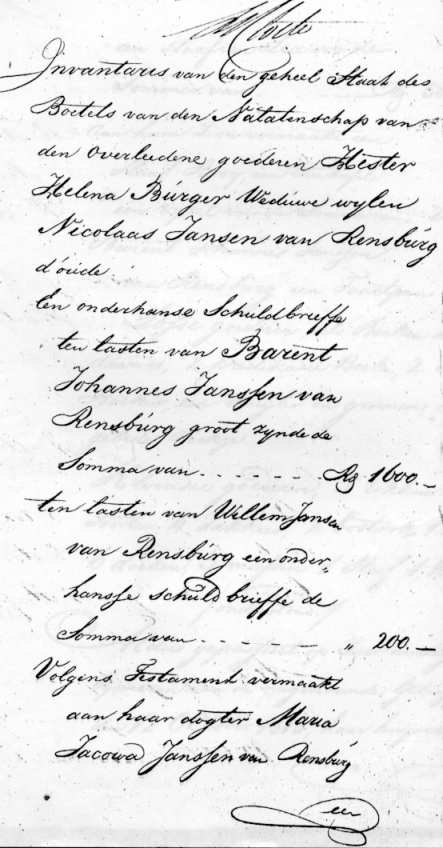 Invantaris van den geheel Staat des
Boetels van den Natatenschap van
den overleedene goederen Hester
Helena Búrger Weduwe wylen
Nicolaas Jansen van Rensbúrg
d'oúde
Een onderhanse Schuldbrieffe
ten lasten van Barent
Johannes Janssen van
Rensbúrg groot zynde de
Somma van - - - - - - Rs 1600.-
ten lasten van Willem Jansen
van Rensbúrg een onder„
hansse schúldbrieffe de
Somma van - - - - - " 200.-
Volgens Testament vermaakt
aan haar dogter Maria
Jacowa Janssen van Rensbúrg
een